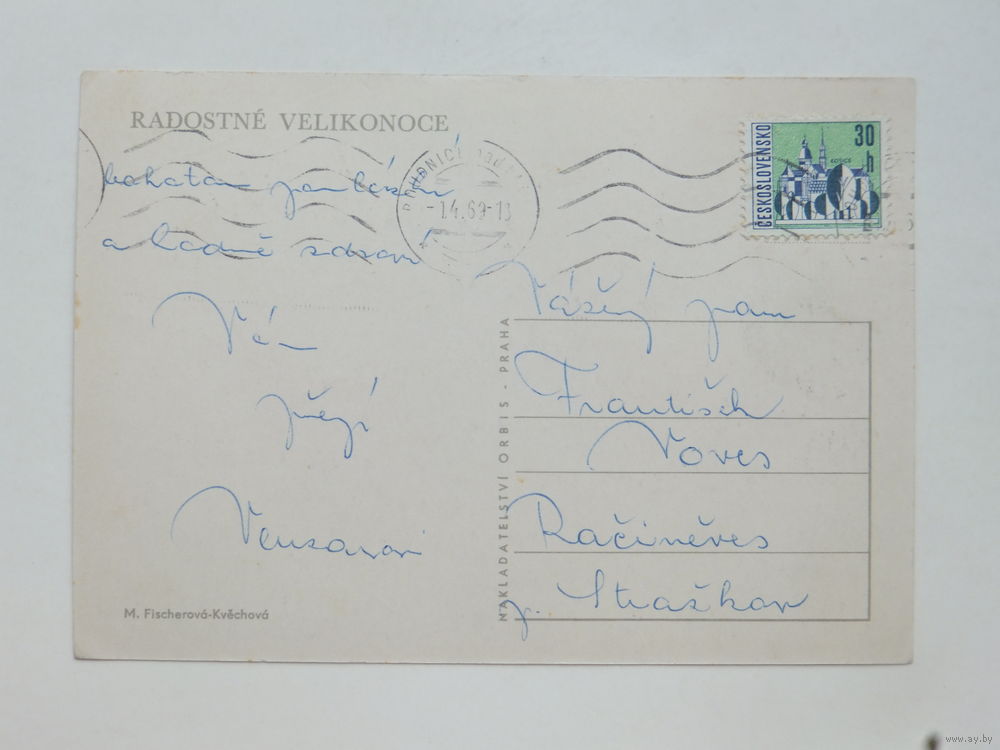 RADOSTNÉ VELIKONOCE
a hodně zdraví
Vám
přejí
ČESKOSLOVENSKO
30
h
KOŠICE
-1.4.69-13
Vážený pan
František
Voves
Račiněves
p. Straškov
NAKLADATELSTVÍ ORBIS - PRAHA
M. Fischerová-Kvěchová
www.ay.by